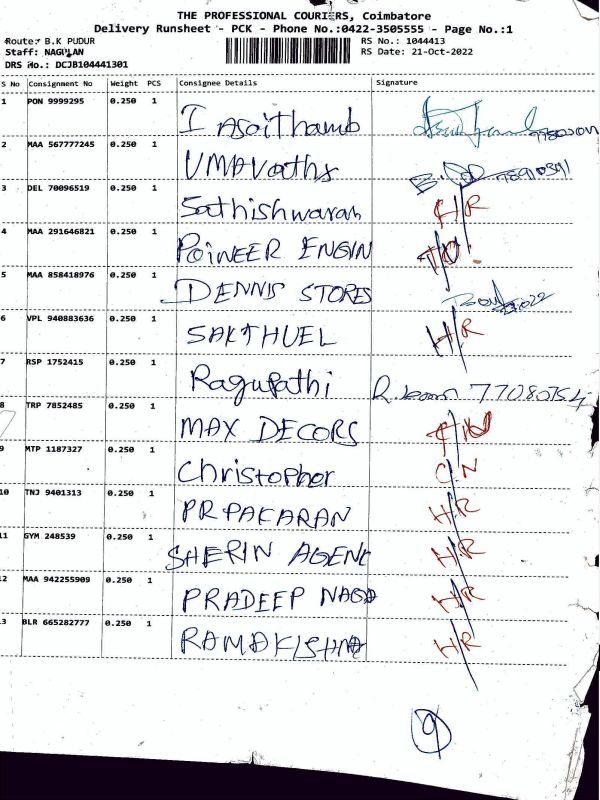 THE PROFESSIONAL COURIERS, Coimbatore
Delivery Runsheet - PCK - Phone No.:0422-3505555 - Page No.:1
Route: B.K PUDUR RS No.: 1044413
Staff: NAGULAN RS Date: 21-Oct-2022
DRS No.: DCJB104441301
S No Consignment No Weight PCS Consignee Details Signature
1 PON 9999295 0.250 1 I Asaithamb
2 MAA 567777245 0.250 1 UMAVathy
3 DEL 70096519 0.250 1 Sathishwaran H/R
4 MAA 291646821 0.250 1 POINEER ENGIN
5 MAA 858418976 0.250 1 DENNIS STORES
6 VPL 940883636 0.250 1 SAKTHUEL H/R
7 RSP 1752415 0.250 1 Ragupathi
8 TRP 7852485 0.250 1 MAX DECORS
9 MTP 1187327 0.250 1 Christopher
10 TNJ 9401313 0.250 1 PRPAKARAN H/R
11 GYM 248539 0.250 1 SHERIN AGENC H/R
12 MAA 942255909 0.250 1 PRADEEP NAGA H/R
13 BLR 665282777 0.250 1 RAMAKISHNA H/R
9